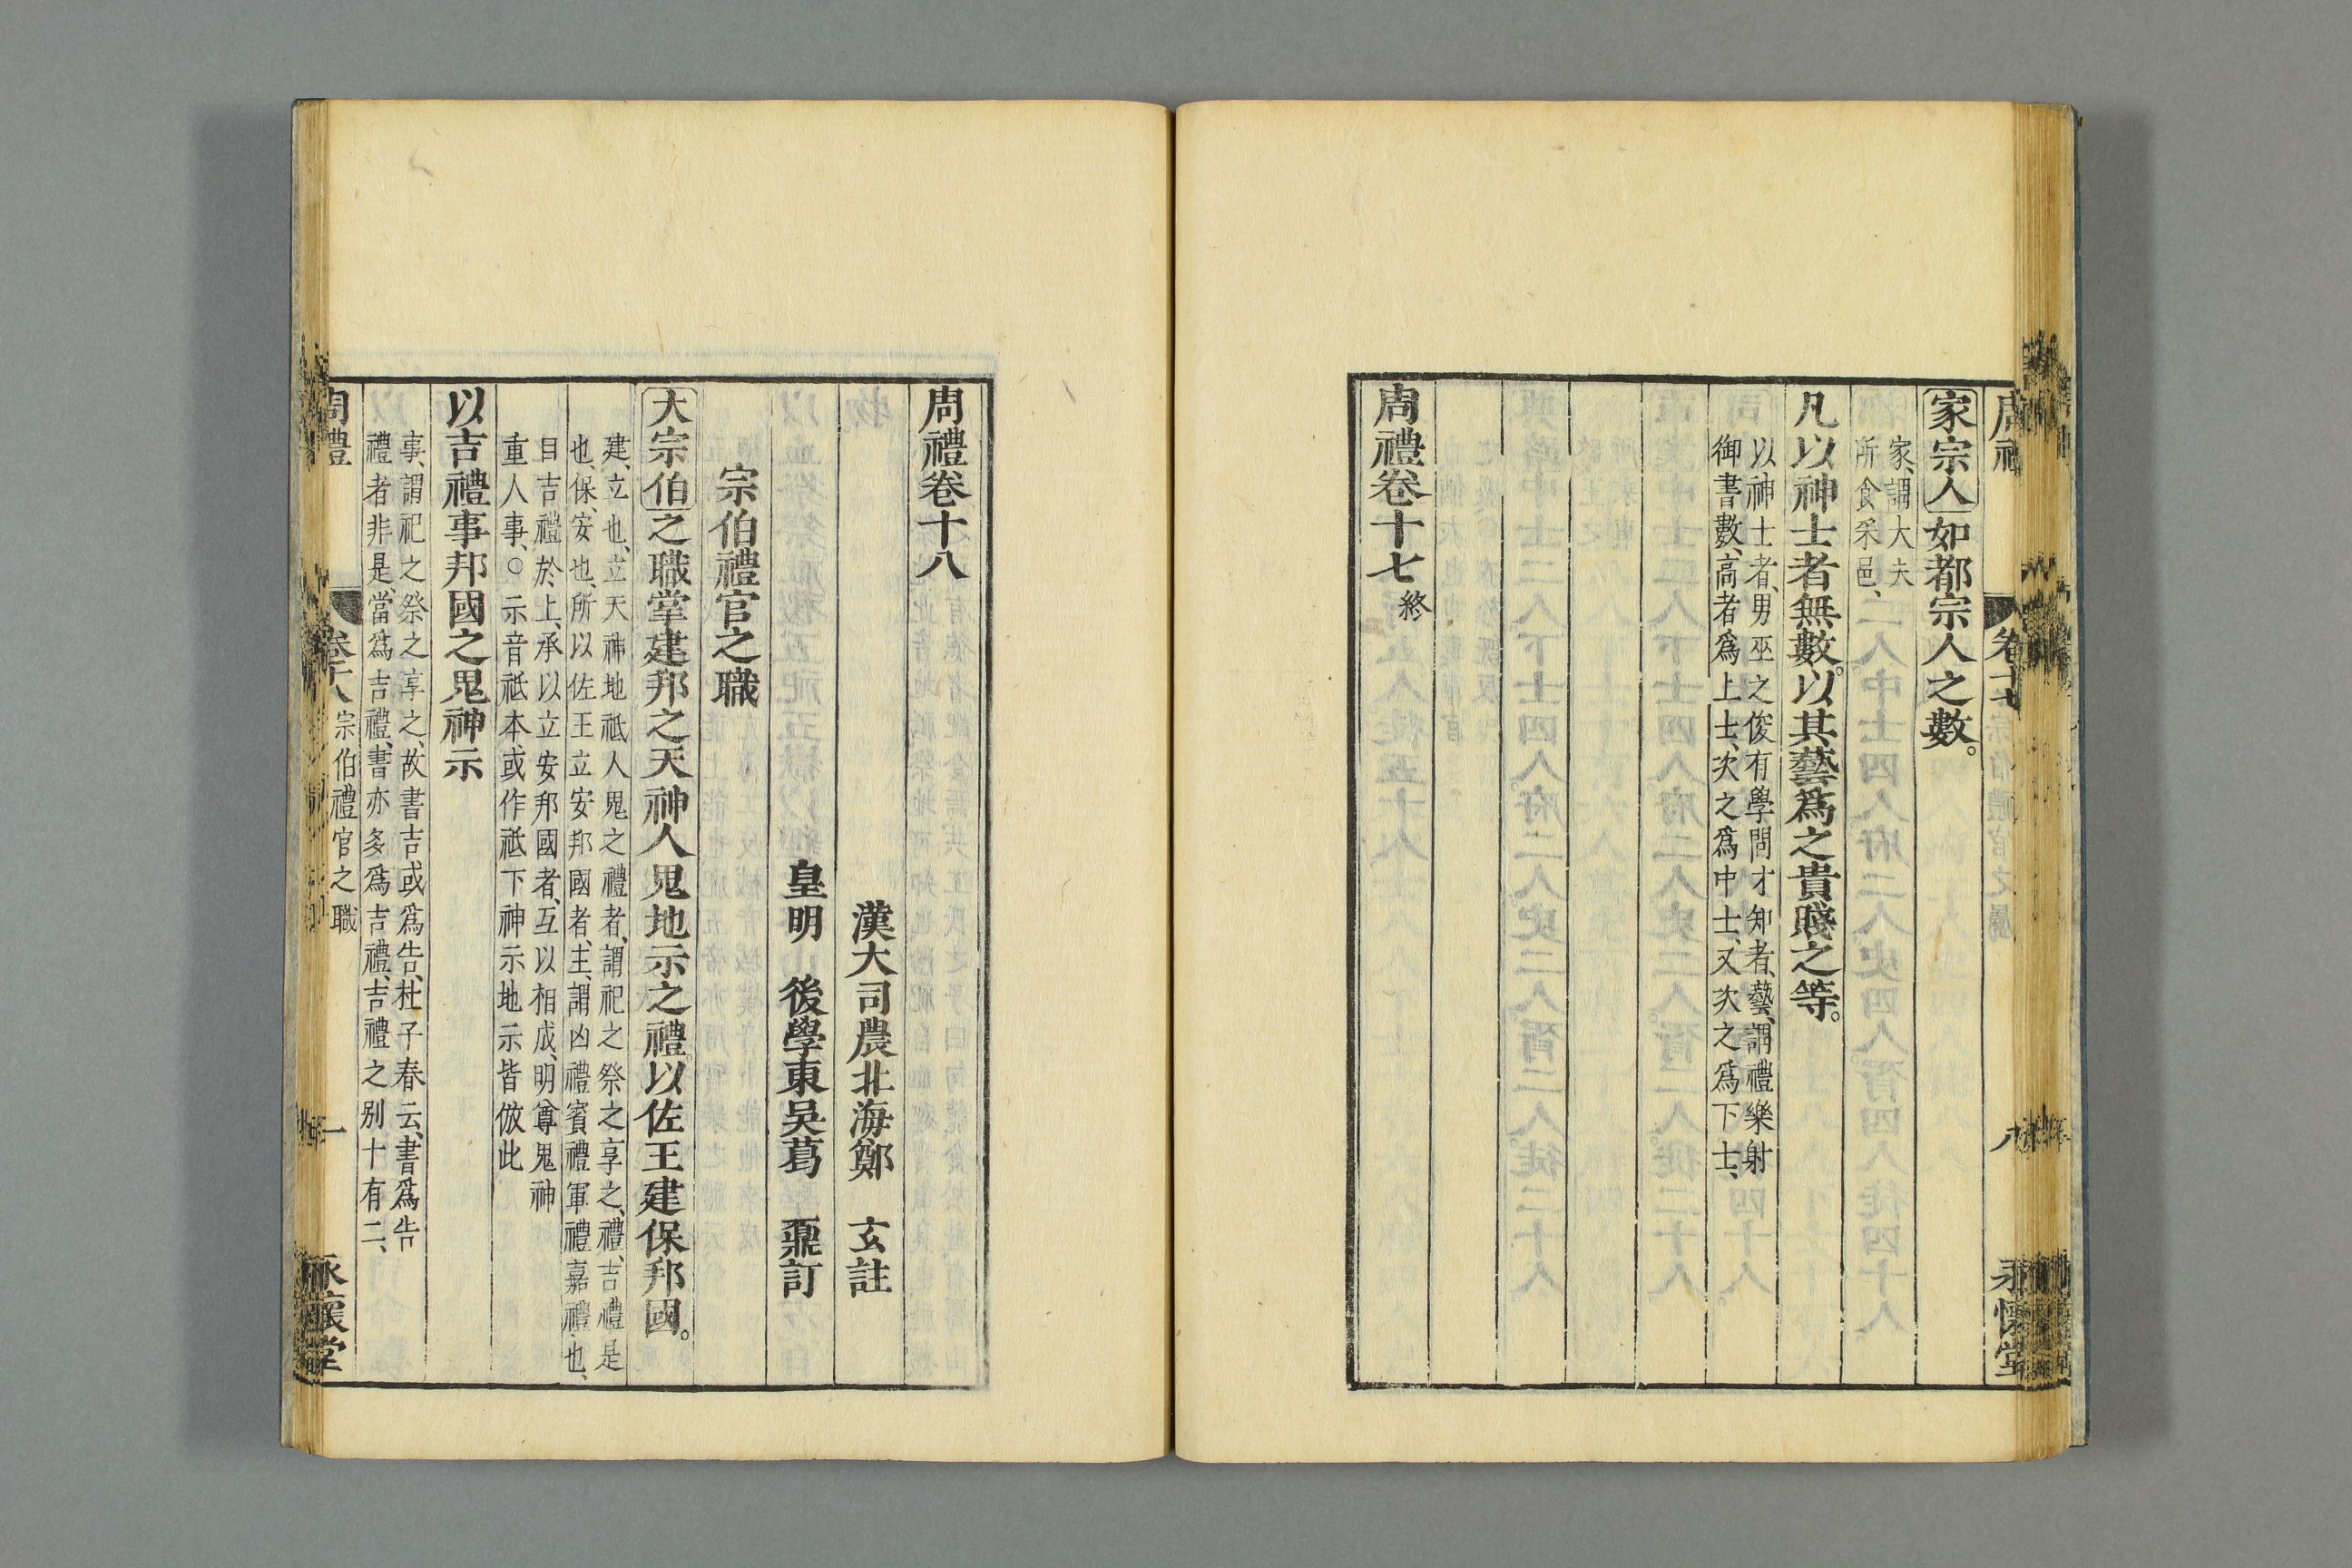 家宗人如都宗人之數。
家、謂大夫
所食采邑、
凡以神士者無數。以其藝爲之貴賤之等。
以神士者、男巫之俊有學問才知者、藝、謂禮樂射
御書數、高者爲上士、次之爲中士、又次之爲下士、
周禮卷十七 終
周禮卷十八
漢大司農北海鄭 玄註
皇明 後學東吳葛 鼒訂
宗伯禮官之職
大宗伯之職掌建邦之天神人鬼地示之禮以佐王建保邦國。
建、立也、立天神地祗人鬼之禮者、謂祀之祭之享之、禮、吉禮是
也、保、安也、所以佐王立安邦國者、主、謂凶禮賓禮軍禮嘉禮也、
目吉禮於上、承以立安邦國者、互以相成、明尊鬼神
重人事、○示音祗本、或作祗下神示地示皆倣此
以吉禮事邦國之鬼神示
事、謂祀之祭之享之、故書吉或爲告、杜子春云、書爲告
禮者非是、當爲吉禮、書亦多爲吉禮、吉禮之别十有二、
周禮 卷十八 宗伯禮官之職 一 永懷堂